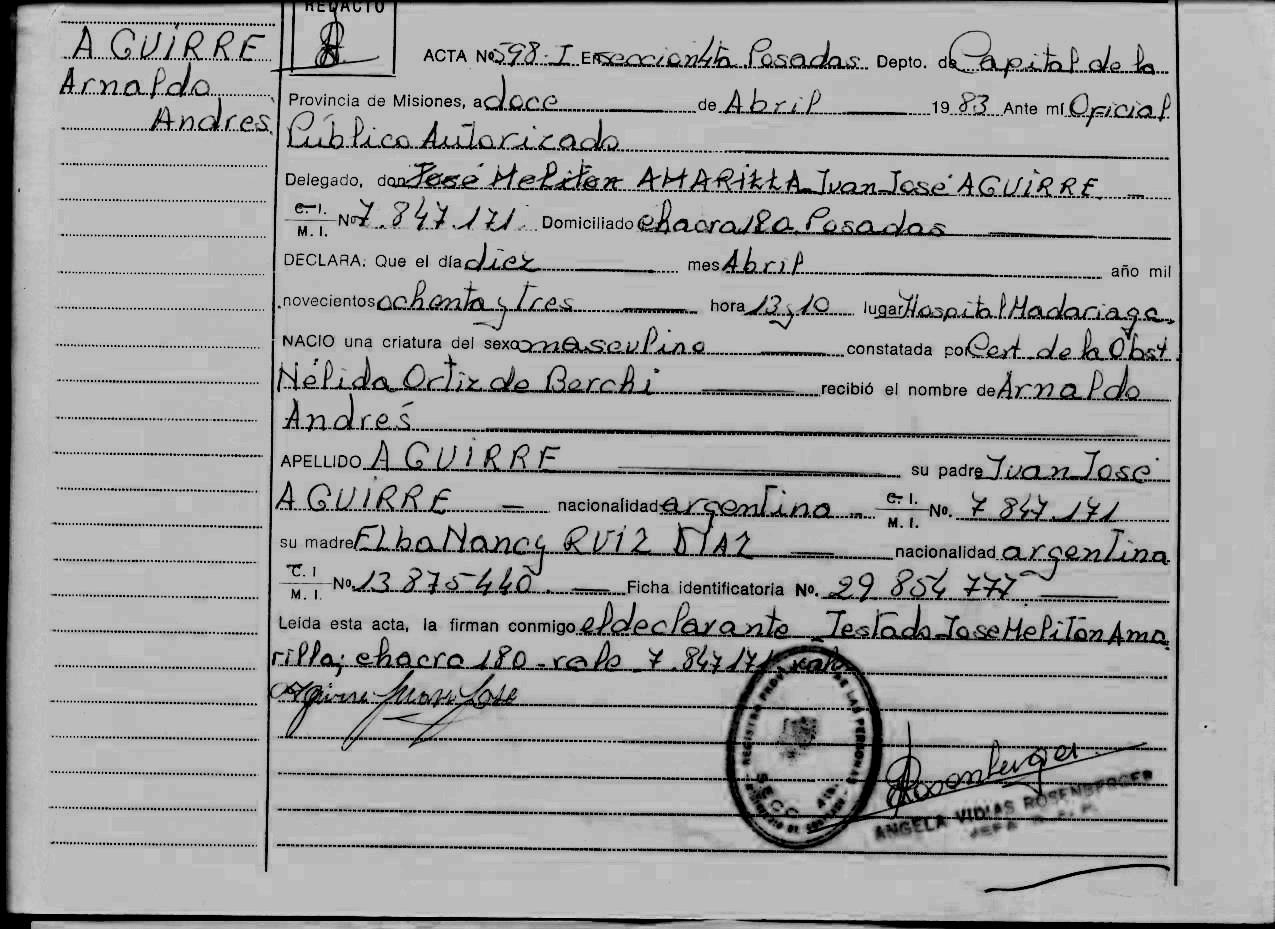 REDACTO
AGUIRRE
Arnaldo
Andres
ACTA Nº 598-I En sección 4ta Posadas Depto. de Capital de la
Provincia de Misiones, a doce de Abril 1983 Ante mí Oficial
Público Autorizado
Delegado, don José Meliton AMARILLA Juan José AGUIRRE
C. I. / M. I. Nº 7.847.171 Domiciliado chacra 180 Posadas
DECLARA: Que el día diez mes Abril año mil
novecientos ochenta y tres hora 13 y 10 lugar Hospital Madariaga
NACIO una criatura del sexo masculino constatada por Cert. de la Obst.
Nélida Ortiz de Berchi recibió el nombre de Arnaldo
Andrés
APELLIDO AGUIRRE su padre Juan José
AGUIRRE nacionalidad argentina C. I. / M. I. No. 7 847 171
su madre Elba Nancy RUIZ DIAZ nacionalidad argentina
C. I / M. I. No. 13 875 440 Ficha identificatoria No. 29 854 777
Leída esta acta, la firman conmigo el declarante Testado Jose Meliton Ama
rilla; chacra 180 - vale 7.847.171 vale
Aguirre Juan Jose
REGISTRO LAS PERSONAS
SECC 4ta.
Rosenberger
ANGELA VIDIAS ROSENBERGER
JEFA